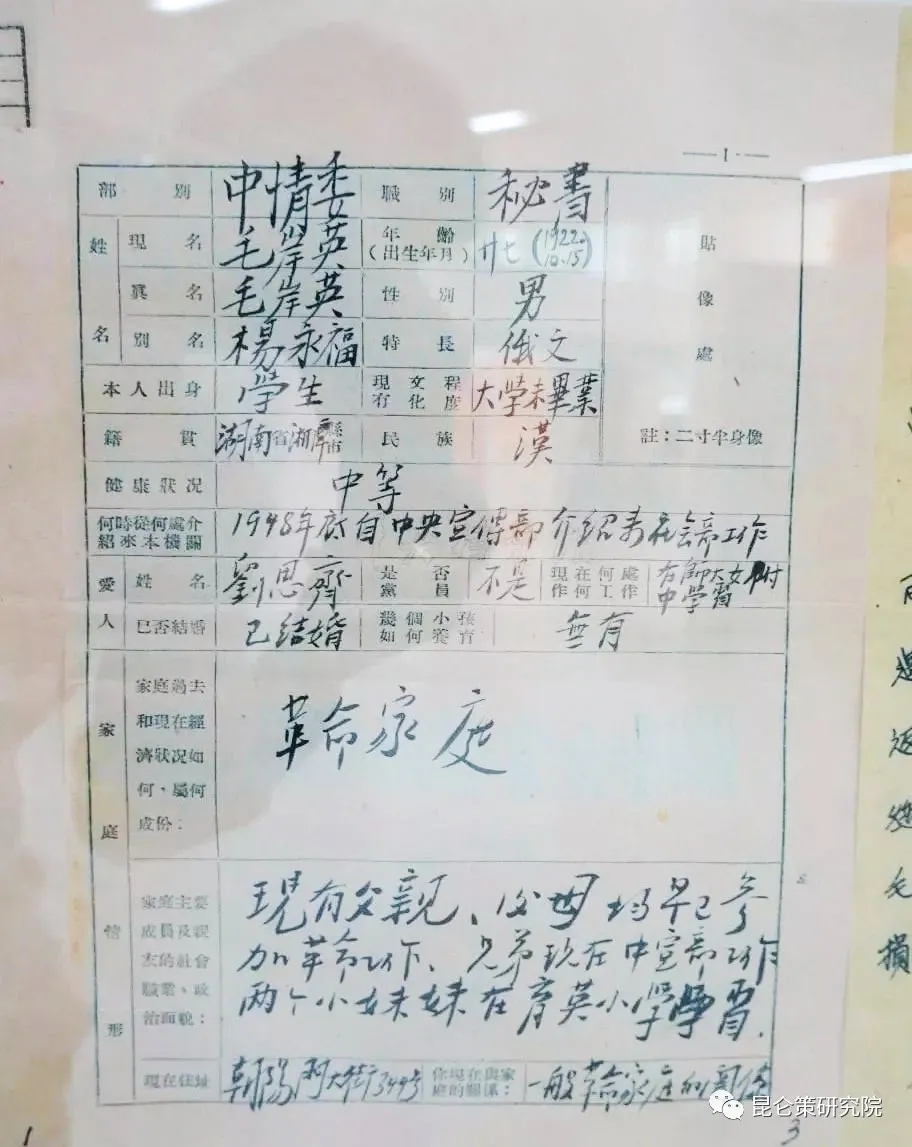 —1—
部別 中情委 職別 秘書
姓名 現名 毛岸英 年齡(出生年月) 廿七(1922.10.15) 貼像處
真名 毛岸英 性別 男
別名 楊永福 特長 俄文
本人出身 學生 現有文化程度 大学未畢業
籍貫 湖南省湘潭縣市 民族 漢 註：二寸半身像
健康狀況 中等
何時從何處介紹來本機關 1948年底自中央宣傳部介绍来社会部工作
愛人 姓名 劉思齊 是否黨員 不是 現在何處作何工作 在師大女附中学習
已否結婚 已结婚 幾個小孩如何養育 無有
家庭情形
家庭過去
和現在經
濟狀況如
何，屬何
成份：
革命家庭
家庭主要
成員及親
友的社會
職業、政
治面貌：
現有父親、父母均早已参
加革命工作、兄弟现在中宣部工作
两个小妹妹在育英小学學習.
現在住址 朝陽门大街344号 你現在與家庭的關係： 一般革命家庭的関係
1
3
損
昆仑策研究院